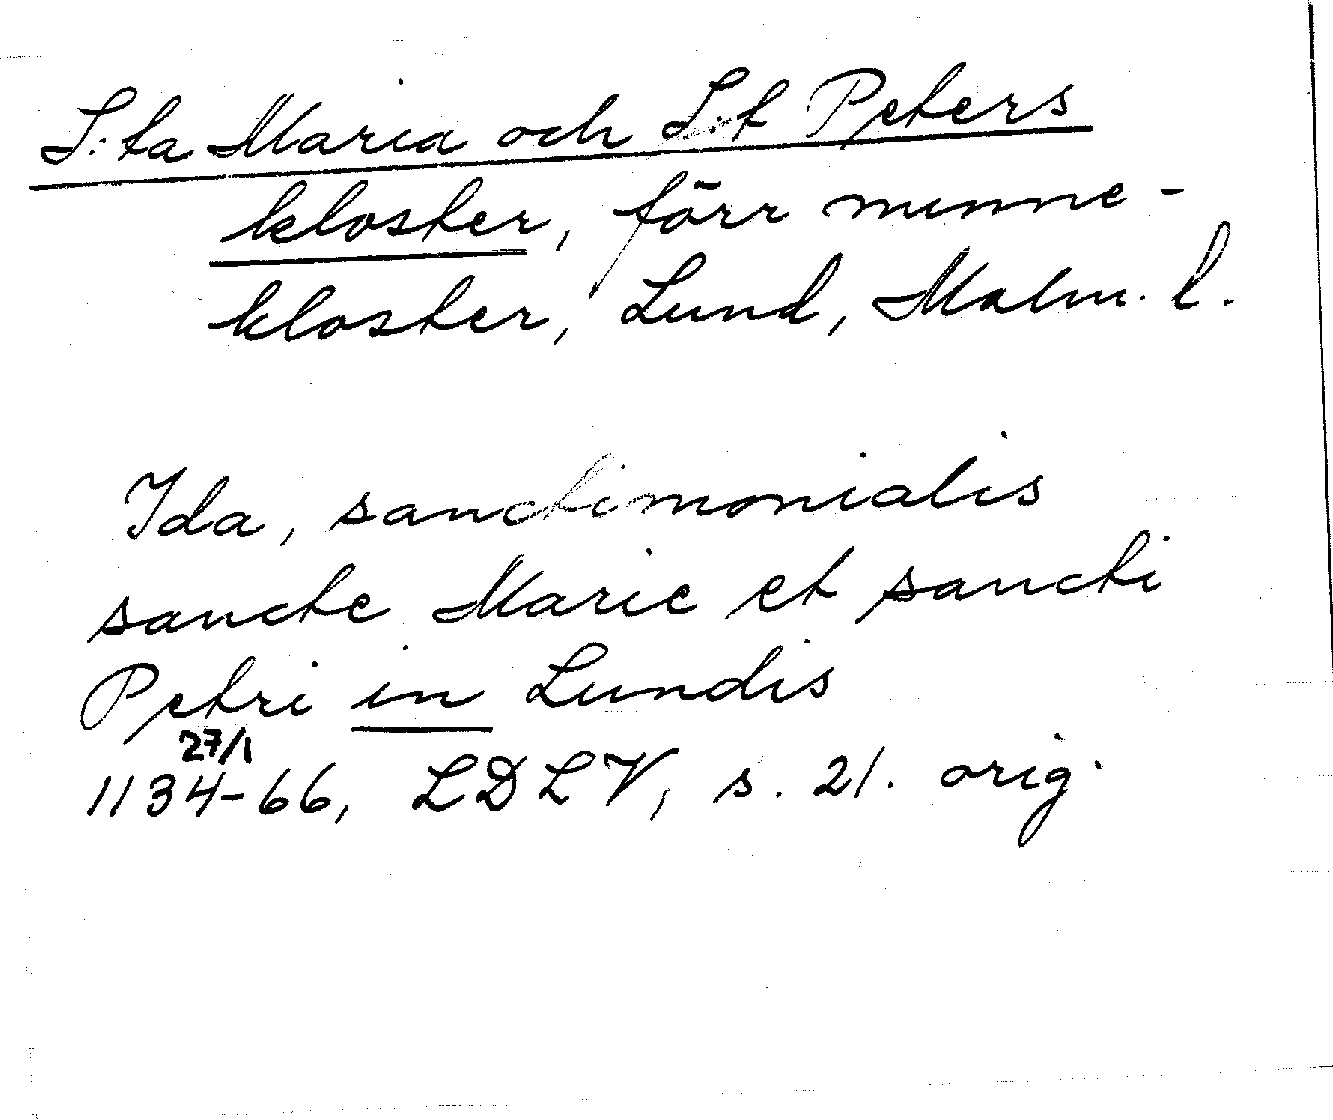 S:ta Maria och S:t Peters
kloster, förr nunne-
kloster, Lund, Malm. l.
Ida, sanctimonialis
sancte Marie et sancti
Petri in Lundis
27/1
1134-66, LDLV, s. 21. orig.